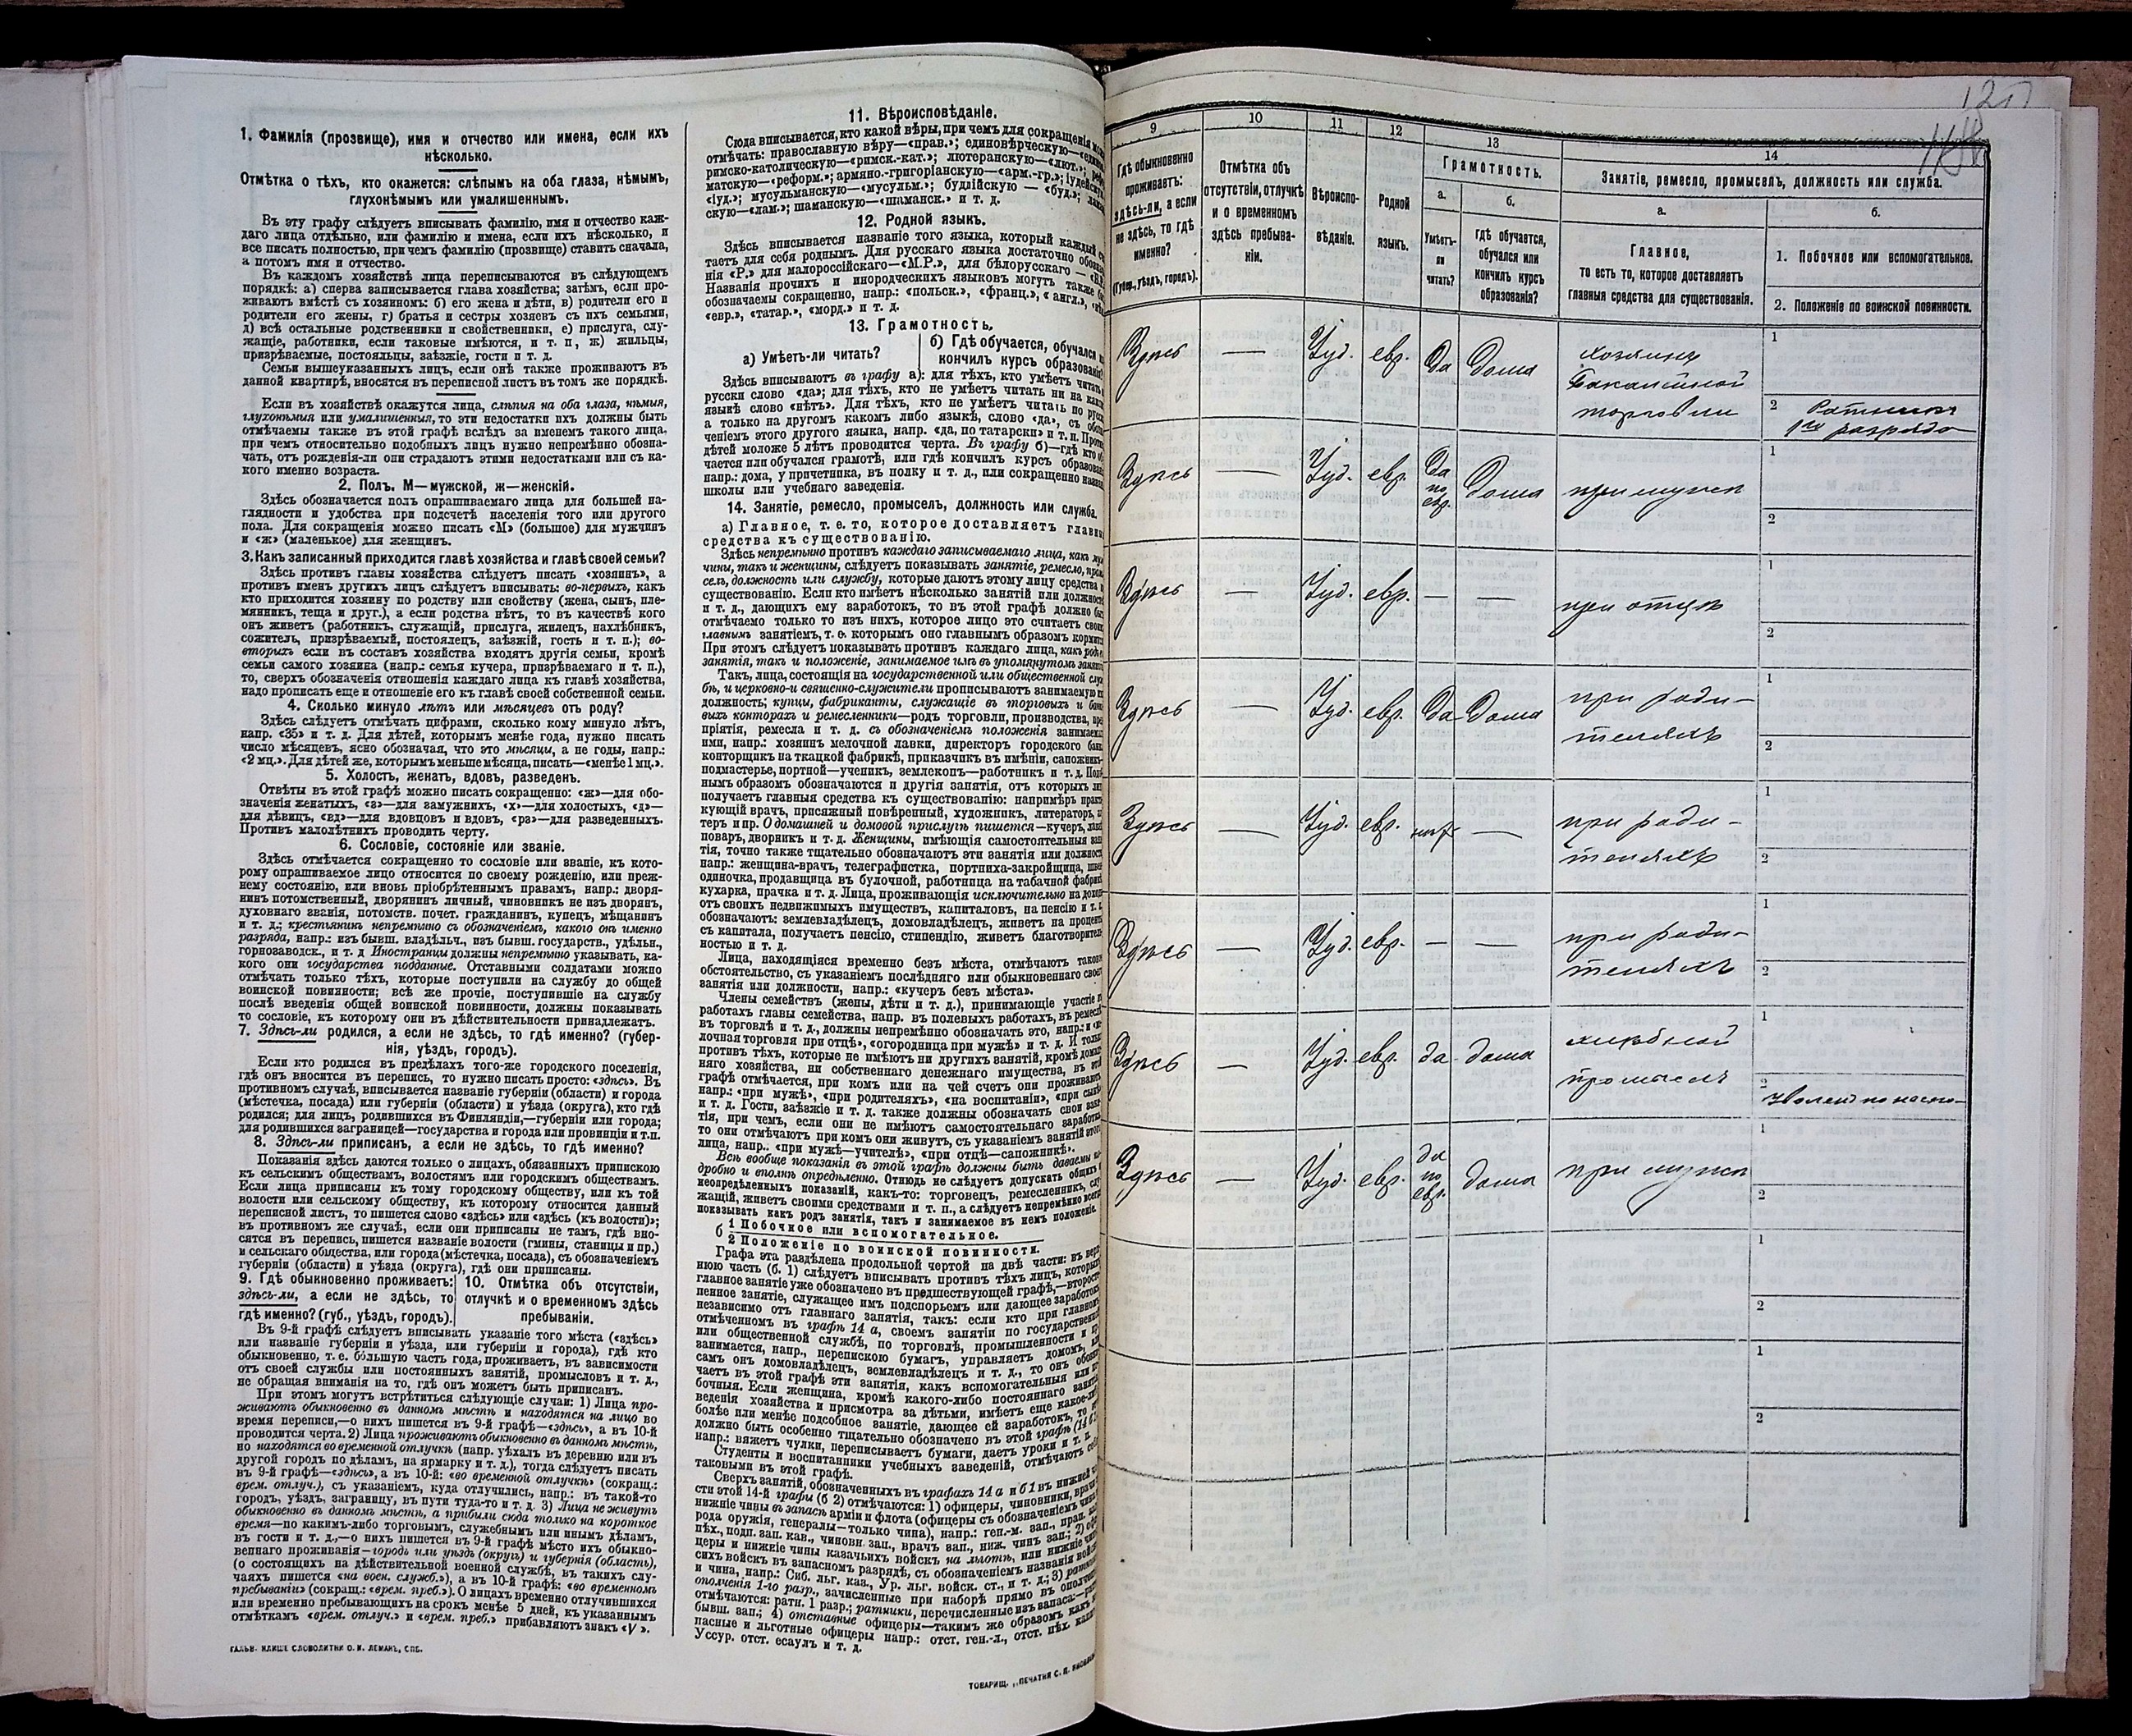 1. Фамилія (прозвище), имя и отчество или имена, если ихъ
нѣсколько.
Отмѣтка о тѣхъ, кто окажется: слѣпымъ на оба глаза, нѣмымъ,
глухонѣмымъ или умалишеннымъ.
Въ эту графу слѣдуетъ вписывать фамилію, имя и отчество каж-
даго лица отдѣльно, или фамилію и имена, если ихъ нѣсколько, и
все писать полностью, при чемъ фамилію (прозвище) ставить сначала,
а потомъ имя и отчество.
Въ каждомъ хозяйствѣ лица переписываются въ слѣдующемъ
порядкѣ: а) сперва записывается глава хозяйства; затѣмъ, если про-
живаютъ вмѣстѣ съ хозяиномъ: б) его жена и дѣти, в) родители его и
родители его жены, г) братья и сестры хозяевъ съ ихъ семьями,
д) всѣ остальные родственники и свойственники, е) прислуга, слу-
жащіе, работники, если таковые имѣются, и т. п, ж) жильцы,
призрѣваемые, постояльцы, заѣзжіе, гости и т. п.
Семьи вышеуказанныхъ лицъ, если онѣ также проживаютъ въ
данной квартирѣ, вносятся въ переписной листъ въ томъ же порядкѣ.
Если въ хозяйствѣ окажутся лица, слѣпыя на оба глаза, нѣмыя,
глухонѣмыя или умалишенныя, то эти недостатки ихъ должны быть
отмѣчаемы также въ этой графѣ вслѣдъ за именемъ такого лица,
при чемъ относительно подобныхъ лицъ нужно непремѣнно обозна-
чать, отъ рожденія-ли они страдаютъ этими недостатками или съ ка-
кого именно возраста.
2. Полъ. М—мужской, ж—женскій.
Здѣсь обозначается полъ опрашиваемаго лица для большей на-
глядности и удобства при подсчетѣ населенія того или другого
пола. Для сокращенія можно писать «М» (большое) для мужчинъ
и «ж» (маленькое) для женщинъ.
3. Какъ записанный приходится главѣ хозяйства и главѣ своей семьи?
Здѣсь противъ главы хозяйства слѣдуетъ писать «хозяинъ», а
противъ именъ другихъ лицъ слѣдуетъ вписывать: во-первыхъ, какъ
кто приходится хозяину по родству или свойству (жена, сынъ, пле-
мянникъ, теща и друг.), а если родства нѣтъ, то въ качествѣ кого
онъ живетъ (работникъ, служащій, прислуга, жилецъ, нахлѣбникъ,
сожитель, призрѣваемый, постоялецъ, заѣзжій, гость и т. п.); во-
вторыхъ если въ составъ хозяйства входятъ другія семьи, кромѣ
семьи самого хозяина (напр.: семья кучера, призрѣваемаго и т. п.),
то, сверхъ обозначенія отношенія каждаго лица къ главѣ хозяйства,
надо прописать еще и отношеніе его къ главѣ своей собственной семьи.
4. Сколько минуло лѣтъ или мѣсяцевъ отъ роду?
Здѣсь слѣдуетъ отмѣчать цифрами, сколько кому минуло лѣтъ,
напр. «35» и т. д. Для дѣтей, которымъ менѣе года, нужно писать
число мѣсяцевъ, ясно обозначая, что это мѣсяцы, а не годы, напр.:
«2 мц.». Для дѣтей же, которымъ меньше мѣсяца, писать—«менѣе 1 мц.».
5. Холостъ, женатъ, вдовъ, разведенъ.
Отвѣты въ этой графѣ можно писать сокращенно: «ж»—для обо-
значенія женатыхъ, «з»—для замужнихъ, «х»—для холостыхъ, «д»—
для дѣвицъ, «вд»—для вдовцовъ и вдовъ, «рз»—для разведенныхъ.
Противъ малолѣтнихъ проводить черту.
6. Сословіе, состояніе или званіе.
Здѣсь отмѣчается сокращенно то сословіе или званіе, къ кото-
рому опрашиваемое лицо относится по своему рожденію, или преж-
нему состоянію, или вновь пріобрѣтеннымъ правамъ, напр.: дворя-
нинъ потомственный, дворянинъ личный, чиновникъ не изъ дворянъ,
духовнаго званія, потомств. почет. гражданинъ, купецъ, мѣщанинъ
и т. д.; крестьянинъ непремѣнно съ обозначеніемъ, какого онъ именно
разряда, напр.: изъ бывш. владѣльч., изъ бывш. государств., удѣльн.,
горнозаводск., и т. д Иностранцы должны непремѣнно указывать, ка-
кого они государства подданные. Отставными солдатами можно
отмѣчать только тѣхъ, которые поступили на службу до общей
воинской повинности; всѣ же прочіе, поступившіе на службу
послѣ введенія общей воинской повинности, должны показывать
то сословіе, къ которому они въ дѣйствительности принадлежатъ.
7. Здѣсь-ли родился, а если не здѣсь, то гдѣ именно? (губер-
нія, уѣздъ, городъ).
Если кто родился въ предѣлахъ того-же городского поселенія,
гдѣ онъ вносится въ перепись, то нужно писать просто: «здѣсь». Въ
противномъ случаѣ, вписывается названіе губерніи (области) и города
(мѣстечка, посада) или губерніи (области) и уѣзда (округа), кто гдѣ
родился; для лицъ, родившихся въ Финляндіи,—губерніи или города;
для родившихся заграницей—государства и города или провинціи и т.п.
8. Здѣсь-ли приписанъ, а если не здѣсь, то гдѣ именно?
Показанія здѣсь даются только о лицахъ, обязанныхъ припискою
къ сельскимъ обществамъ, волостямъ или городскимъ обществамъ.
Если лица приписаны къ тому городскому обществу, или къ той
волости или сельскому обществу, къ которому относится данный
переписной листъ, то пишется слово «здѣсь» или «здѣсь (къ волости)»;
въ противномъ же случаѣ, если они приписаны не тамъ, гдѣ вно-
сятся въ перепись, пишется названіе волости (гмины, станицы и пр.)
и сельскаго общества, или города (мѣстечка, посада), съ обозначеніемъ
губерніи (области) и уѣзда (округа), гдѣ они приписаны.
9. Гдѣ обыкновенно проживаетъ:
здѣсь-ли, а если не здѣсь, то
гдѣ именно? (губ., уѣздъ, городъ).
10. Отмѣтка объ отсутствіи,
отлучкѣ и о временномъ здѣсь
пребываніи.
Въ 9-й графѣ слѣдуетъ вписывать указаніе того мѣста («здѣсь»
или названіе губерніи и уѣзда, или губерніи и города), гдѣ кто
обыкновенно, т. е. большую часть года, проживаетъ, въ зависимости
отъ своей службы или постоянныхъ занятій, промысловъ и т. д.,
не обращая вниманія на то, гдѣ онъ можетъ быть приписанъ.
При этомъ могутъ встрѣтиться слѣдующіе случаи: 1) Лица про-
живаютъ обыкновенно въ данномъ мѣстѣ и находятся на лицо во
время переписи,—о нихъ пишется въ 9-й графѣ—«здѣсь», а въ 10-й
проводится черта. 2) Лица проживаютъ обыкновенно въ данномъ мѣстѣ,
но находятся во временной отлучкѣ (напр. уѣхалъ въ деревню или въ
другой городъ по дѣламъ, на ярмарку и т. д.), тогда слѣдуетъ писать
въ 9-й графѣ—«здѣсь», а въ 10-й: «во временной отлучкѣ» (сокращ.:
врем. отлуч.), съ указаніемъ, куда отлучились, напр.: въ такой-то
городъ, уѣздъ, заграницу, въ пути туда-то и т. д. 3) Лица не живутъ
обыкновенно въ данномъ мѣстѣ, а прибыли сюда только на короткое
время—по какимъ-либо торговымъ, служебнымъ или инымъ дѣламъ,
въ гости и т. д.,—о нихъ пишется въ 9-й графѣ мѣсто ихъ обыкно-
веннаго проживанія—городъ или уѣздъ (округъ) и губернія (область),
(о состоящихъ на дѣйствительной военной службѣ, въ такихъ слу-
чаяхъ пишется «на воен. служб.»), а въ 10-й графѣ: «во временномъ
пребываніи» (сокращ.: «врем. преб.»). О лицахъ временно отлучившихся
или временно пребывающихъ на срокъ менѣе 5 дней, къ указаннымъ
отмѣткамъ «врем. отлуч.» и «врем. преб.» прибавляютъ знакъ «V».
ГАЛЬВ. КЛИШЕ СЛОВОЛИТНИ О. И. ЛЕМАНЪ, СПБ.
11. Вѣроисповѣданіе.
Сюда вписывается, кто какой вѣры, при чемъ для сокращенія
отмѣчать: православную вѣру—«прав.»; единовѣрческую—
римско-католическую—«римск.-кат.»; лютеранскую—«лют.»;
матскую—«реформ.»; армяно.-григоріанскую—«арм.-гр.»;
«іуд.»; мусульманскую—«мусульм.»; буддійскую — «буд.»;
скую—«лам.»; шаманскую—«шаманск.» и т. д.
12. Родной языкъ.
Здѣсь вписывается названіе того языка, который каждый
таетъ для себя роднымъ. Для русскаго языка достаточно
нія «Р.» для малороссійскаго—«М.Р.», для бѣлорусскаго —
Названія прочихъ и инородческихъ языковъ могутъ также
обозначаемы сокращенно, напр.: «польск.», «франц.», «англ.»,
«евр.», «татар.», «морд.» и т. д.
13. Грамотность.
а) Умѣетъ-ли читать?
б) Гдѣ обучается, обучался
кончилъ курсъ образованія?
Здѣсь вписываютъ въ графу а): для тѣхъ, кто умѣетъ читать
русски слово «да»; для тѣхъ, кто не умѣетъ читать ни на
языкѣ слово «нѣтъ». Для тѣхъ, кто не умѣетъ читать по
а только на другомъ какомъ либо языкѣ, слово «да», съ
ченіемъ этого другого языка, напр. «да, по татарски» и т. п.
дѣтей моложе 5 лѣтъ проводится черта. Въ графу б)—гдѣ кто
чается или обучался грамотѣ, или гдѣ кончилъ курсъ
напр.: дома, у причетника, въ полку и т. д., или сокращенно
школы или учебнаго заведенія.
14. Занятіе, ремесло, промыселъ, должность или служба.
а) Главное, т. е. то, которое доставляетъ
средства къ существованію.
Здѣсь непремѣнно противъ каждаго записываемаго лица, какъ
чины, такъ и женщины, слѣдуетъ показывать занятіе, ремесло,
селъ, должность или службу, которые даютъ этому лицу средства
существованію. Если кто имѣетъ нѣсколько занятій или
и т. д., дающихъ ему заработокъ, то въ этой графѣ должно
отмѣчаемо только то изъ нихъ, которое лицо это считаетъ
главнымъ занятіемъ, т. е. которымъ оно главнымъ образомъ
При этомъ слѣдуетъ показывать противъ каждаго лица, какъ
занятія, такъ и положеніе, занимаемое имъ въ упомянутомъ
Такъ, лица, состоящія на государственной или общественной
бѣ, и церковно-и священно-служители прописываютъ занимаемую
должность; купцы, фабриканты, служащіе въ торговыхъ и
выхъ конторахъ и ремесленники—родъ торговли, производства,
пріятія, ремесла и т. д. съ обозначеніемъ положенія
ими, напр.: хозяинъ мелочной лавки, директоръ городского
конторщикъ на ткацкой фабрикѣ, приказчикъ въ имѣніи,
подмастерье, портной—ученикъ, землекопъ—работникъ и т. д.
нымъ образомъ обозначаются и другія занятія, отъ которыхъ
получаетъ главныя средства къ существованію: напримѣръ
кующій врачъ, присяжный повѣренный, художникъ, литераторъ,
теръ и пр. О домашней и домовой прислугѣ пишется—кучеръ,
поваръ, дворникъ и т. д. Женщины, имѣющія самостоятельныя
тія, точно также тщательно обозначаютъ эти занятія или
напр.: женщина-врачъ, телеграфистка, портниха-закройщица,
одиночка, продавщица въ булочной, работница на табачной
кухарка, прачка и т. д. Лица, проживающія исключительно на
отъ своихъ недвижимыхъ имуществъ, капиталовъ, на пенсію и т.
обозначаютъ: землевладѣлецъ, домовладѣлецъ, живетъ на
съ капитала, получаетъ пенсію, стипендію, живетъ
ностью и т. д.
Лица, находящіяся временно безъ мѣста, отмѣчаютъ
обстоятельство, съ указаніемъ послѣдняго или обыкновеннаго
занятія или должности, напр.: «кучеръ безъ мѣста».
Члены семействъ (жены, дѣти и т. д.), принимающіе участіе
работахъ главы семейства, напр. въ полевыхъ работахъ, въ
въ торговлѣ и т. д., должны непремѣнно обозначать это, напр.:
лочная торговля при отцѣ», «огородница при мужѣ» и т. д. И
противъ тѣхъ, которые не имѣютъ ни другихъ занятій, кромѣ
няго хозяйства, ни собственнаго денежнаго имущества, въ
графѣ отмѣчается, при комъ или на чей счетъ они проживаютъ
напр.: «при мужѣ», «при родителяхъ», «на воспитаніи», «при
и т. д. Гости, заѣзжіе и т. д. также должны обозначать свои
тія, при чемъ, если они не имѣютъ самостоятельнаго
то они отмѣчаютъ при комъ они живутъ, съ указаніемъ занятій
лица, напр.. «при мужѣ—учителѣ», «при отцѣ—сапожникѣ».
Всѣ вообще показанія въ этой графѣ должны быть даваемы
дробно и вполнѣ опредѣленно. Отнюдь не слѣдуетъ допускать
неопредѣленныхъ показаній, какъ-то: торговецъ, ремесленникъ,
жащій, живетъ своими средствами и т. п., а слѣдуетъ непремѣнно
показывать какъ родъ занятія, такъ и занимаемое въ немъ положеніе.
б 1 Побочное или вспомогательное.
2 Положеніе по воинской повинности.
Графа эта раздѣлена продольной чертой на двѣ части: въ
нюю часть (б. 1) слѣдуетъ вписывать противъ тѣхъ лицъ,
главное занятіе уже обозначено въ предшествующей графѣ,—
пенное занятіе, служащее имъ подспорьемъ или дающее
независимо отъ главнаго занятія, такъ: если кто при
отмѣченномъ въ графѣ 14 а, своемъ занятіи по
или общественной службѣ, по торговлѣ, промышленности и
занимается, напр., перепискою бумагъ, управляетъ домомъ,
самъ онъ домовладѣлецъ, землевладѣлецъ и т. д., то онъ
чаетъ въ этой графѣ эти занятія, какъ вспомогательныя или
бочныя. Если женщина, кромѣ какого-либо постояннаго
веденія хозяйства и присмотра за дѣтьми, имѣетъ еще
болѣе или менѣе подсобное занятіе, дающее ей заработокъ, то
должно быть особенно тщательно обозначено въ этой графѣ
напр.: вяжетъ чулки, переписываетъ бумаги, даетъ уроки и т. п.
Студенты и воспитанники учебныхъ заведеній, отмѣчаютъ
таковыми въ этой графѣ.
Сверхъ занятій, обозначенныхъ въ графахъ 14 а и б 1 въ нижней
сти этой 14-й графы (б 2) отмѣчаются: 1) офицеры, чиновники,
нижніе чины въ запасѣ арміи и флота (офицеры съ обозначеніемъ
рода оружія, генералы—только чина), напр.: ген.-м. зап.,
пѣх., подп. зап. кав., чиновн. зап., врачъ зап., ниж. чинъ зап.; 2)
церы и нижніе чины казачьихъ войскъ на льготѣ, или
сихъ войскъ въ запасномъ разрядѣ, съ обозначеніемъ названія
и чина, напр.: Сиб. льг. каз., Ур. льг. войск. ст., и т. д.; 3)
ополченія 1-го разр., зачисленные при наборѣ прямо въ
отмѣчаются: ратн. 1 разр.; ратники, перечисленные изъ запаса:—
бывш. зап.; 4) отставные офицеры—такимъ же образомъ какъ
пасные и льготные офицеры напр.: отст. ген.-л., отст. пѣх.
Уссур. отст. есаулъ и т. д.
ТОВАРИЩ. „ПЕЧАТНЯ С. П.
9
10
11
12
13
14
Гдѣ обыкновенно
проживаетъ:
здѣсь-ли, а если
не здѣсь, то гдѣ
именно?
(Губер., уѣздъ, городъ).
Отмѣтка объ
отсутствіи, отлучкѣ
и о временномъ
здѣсь пребыва-
ніи.
Вѣроиспо-
вѣданіе.
Родной
языкъ.
Грамотность.
а.
Умѣетъ-
ли
читать?
б.
гдѣ обучается,
обучался или
кончилъ курсъ
образованія?
Занятіе, ремесло, промыселъ, должность или служба.
а.
Главное,
то есть то, которое доставляетъ
главныя средства для существованія.
б.
1. Побочное или вспомогательное.
2. Положеніе по воинской повинности.
Здѣсь — Іуд. евр. да дома
хозяинъ
бакалейной
торговли
1
2 Ратникъ
1го разряда
Здѣсь — Іуд. евр. да
по
евр. дома при мужѣ
1
2
Здѣсь — Іуд. евр. — — при отцѣ
1
2
Здѣсь — Іуд. евр. да дома при роди-
теляхъ
1
2
Здѣсь — Іуд. евр. нѣт — при роди-
теляхъ
1
2
Здѣсь — Іуд. евр. — — при роди-
теляхъ
1
2
Здѣсь — Іуд. евр. да дома хлѣбной
промыселъ
1
2
Здѣсь — Іуд. евр. да
по
евр. дома при мужѣ
1
2
1
2
1
2